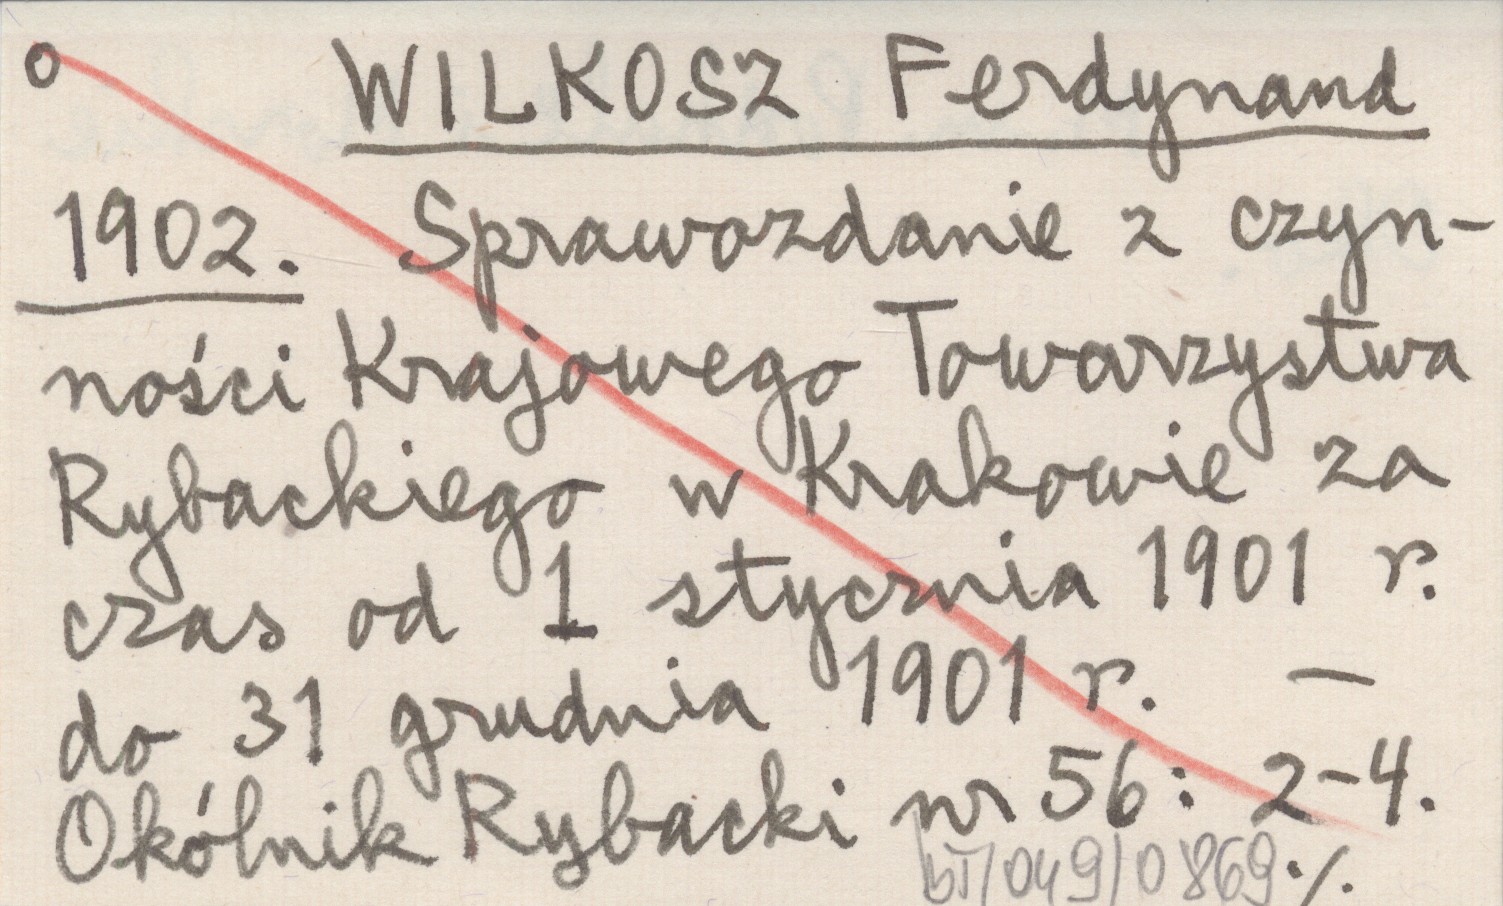 o WILKOSZ Ferdynand
1902. Sprawozdanie z czyn-
ności Krajowego Towarzystwa
Rybackiego w Krakowie za
czas od 1 stycznia 1901 r.
do 31 grudnia 1901 r. —
Okólnik Rybacki nr 56: 2-4.
bT/049/0869 ./.